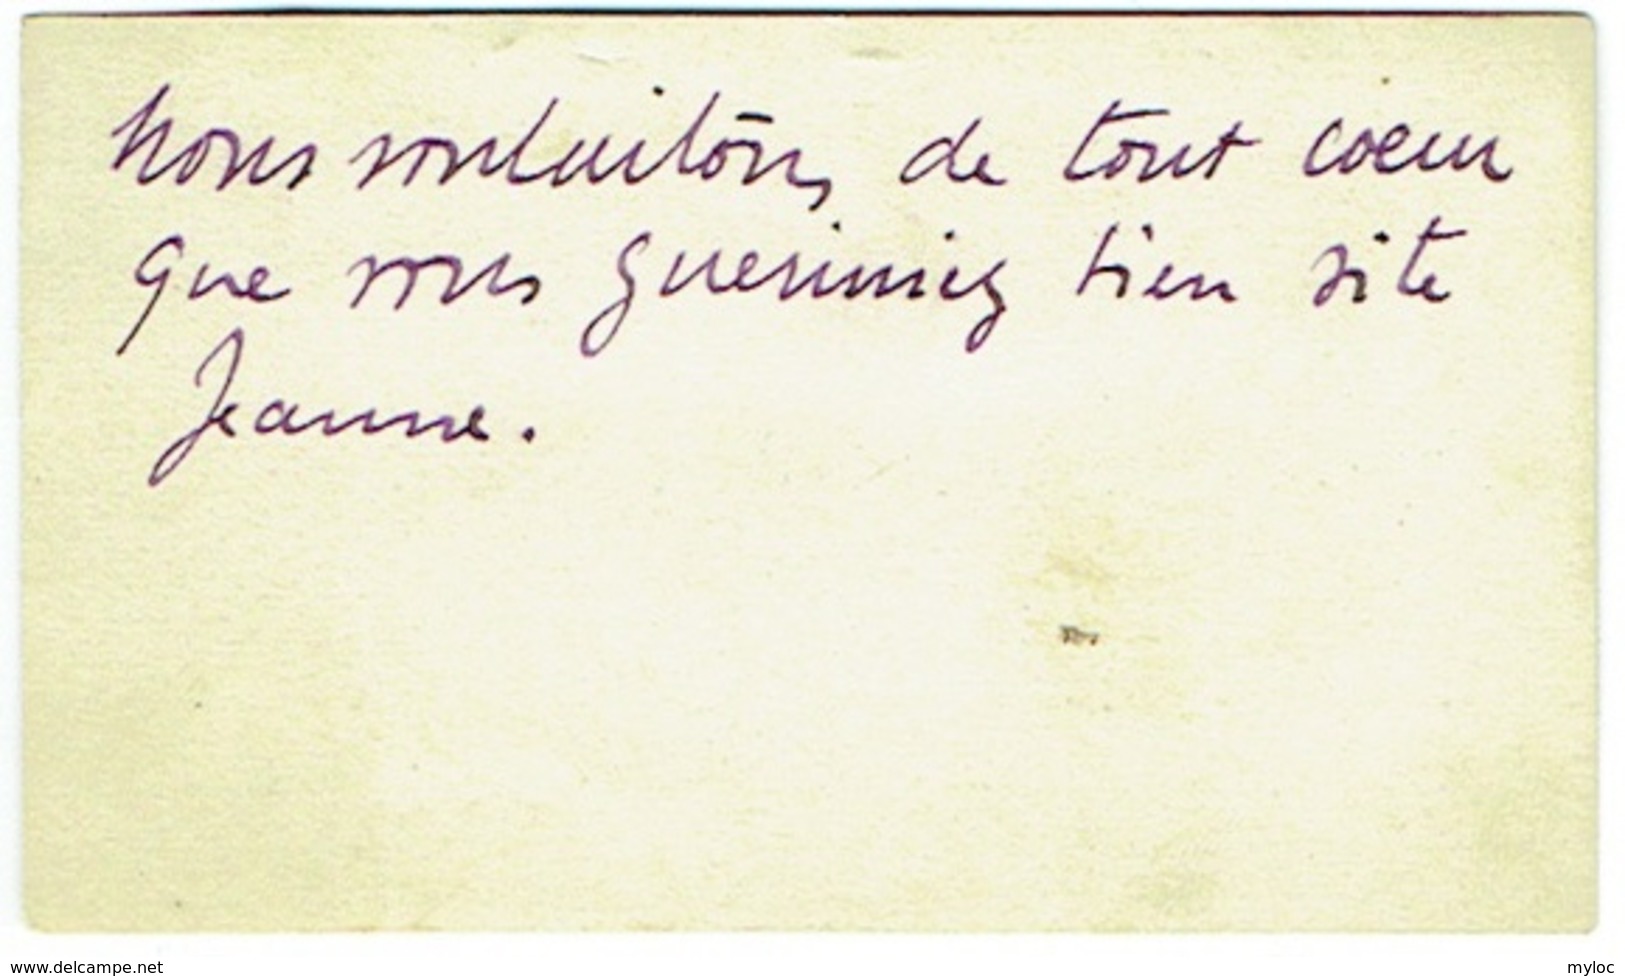 Nous souhaitons de tout coeur
que vous guerissiez bien vite
Jeanne.
www.delcampe.net
myloc